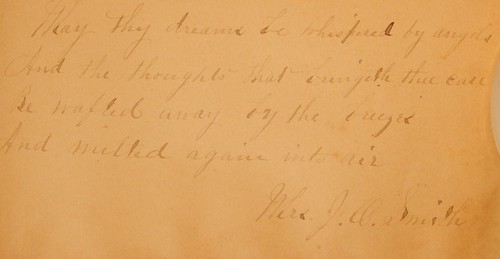 May thy dreams be whispered by angels
And the thoughts that bringeth thee care
Be wafted away by the breezes
And milted again into air
Mrs. J. O. Smith